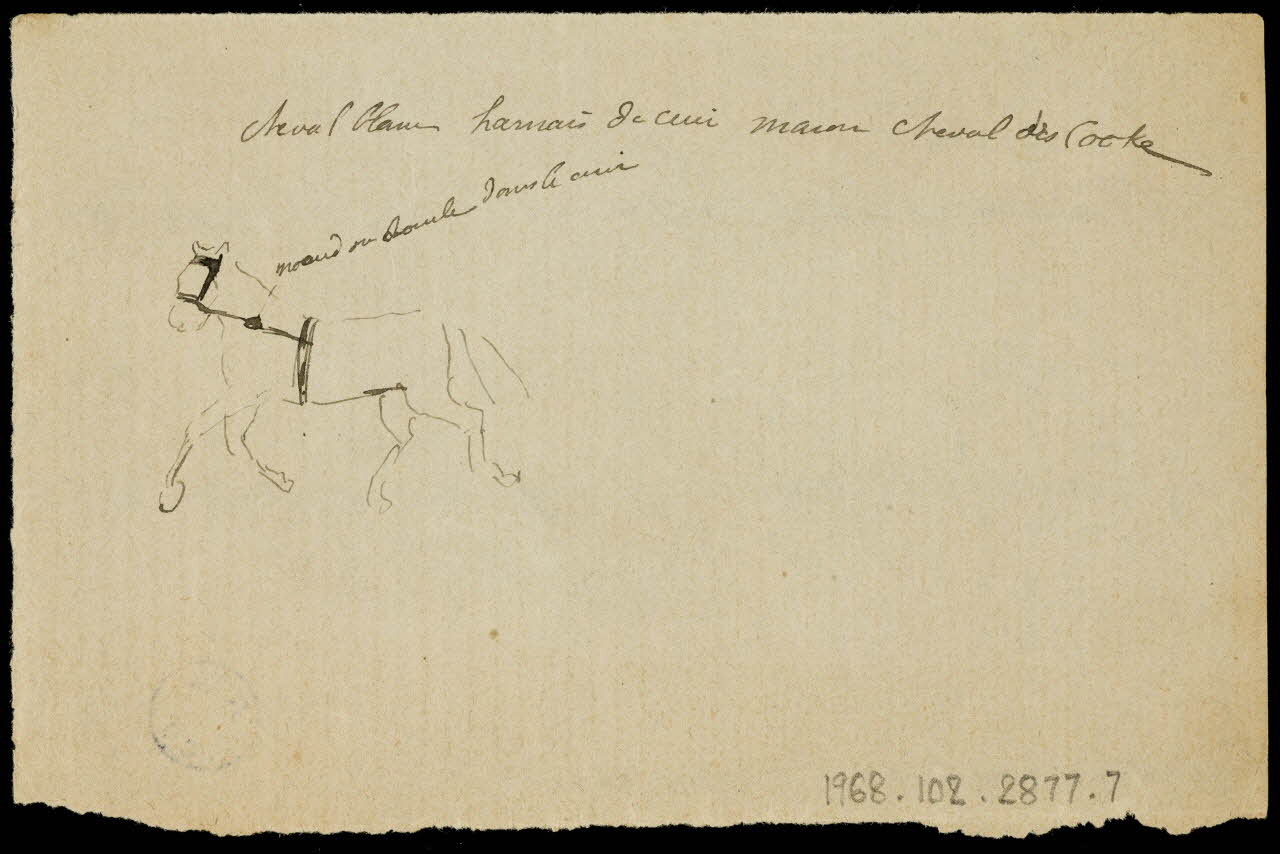 cheval blanc harnais de cuir maron cheval des Cooke
noeud ou boucle dans le cuir
1968.102.2877.7